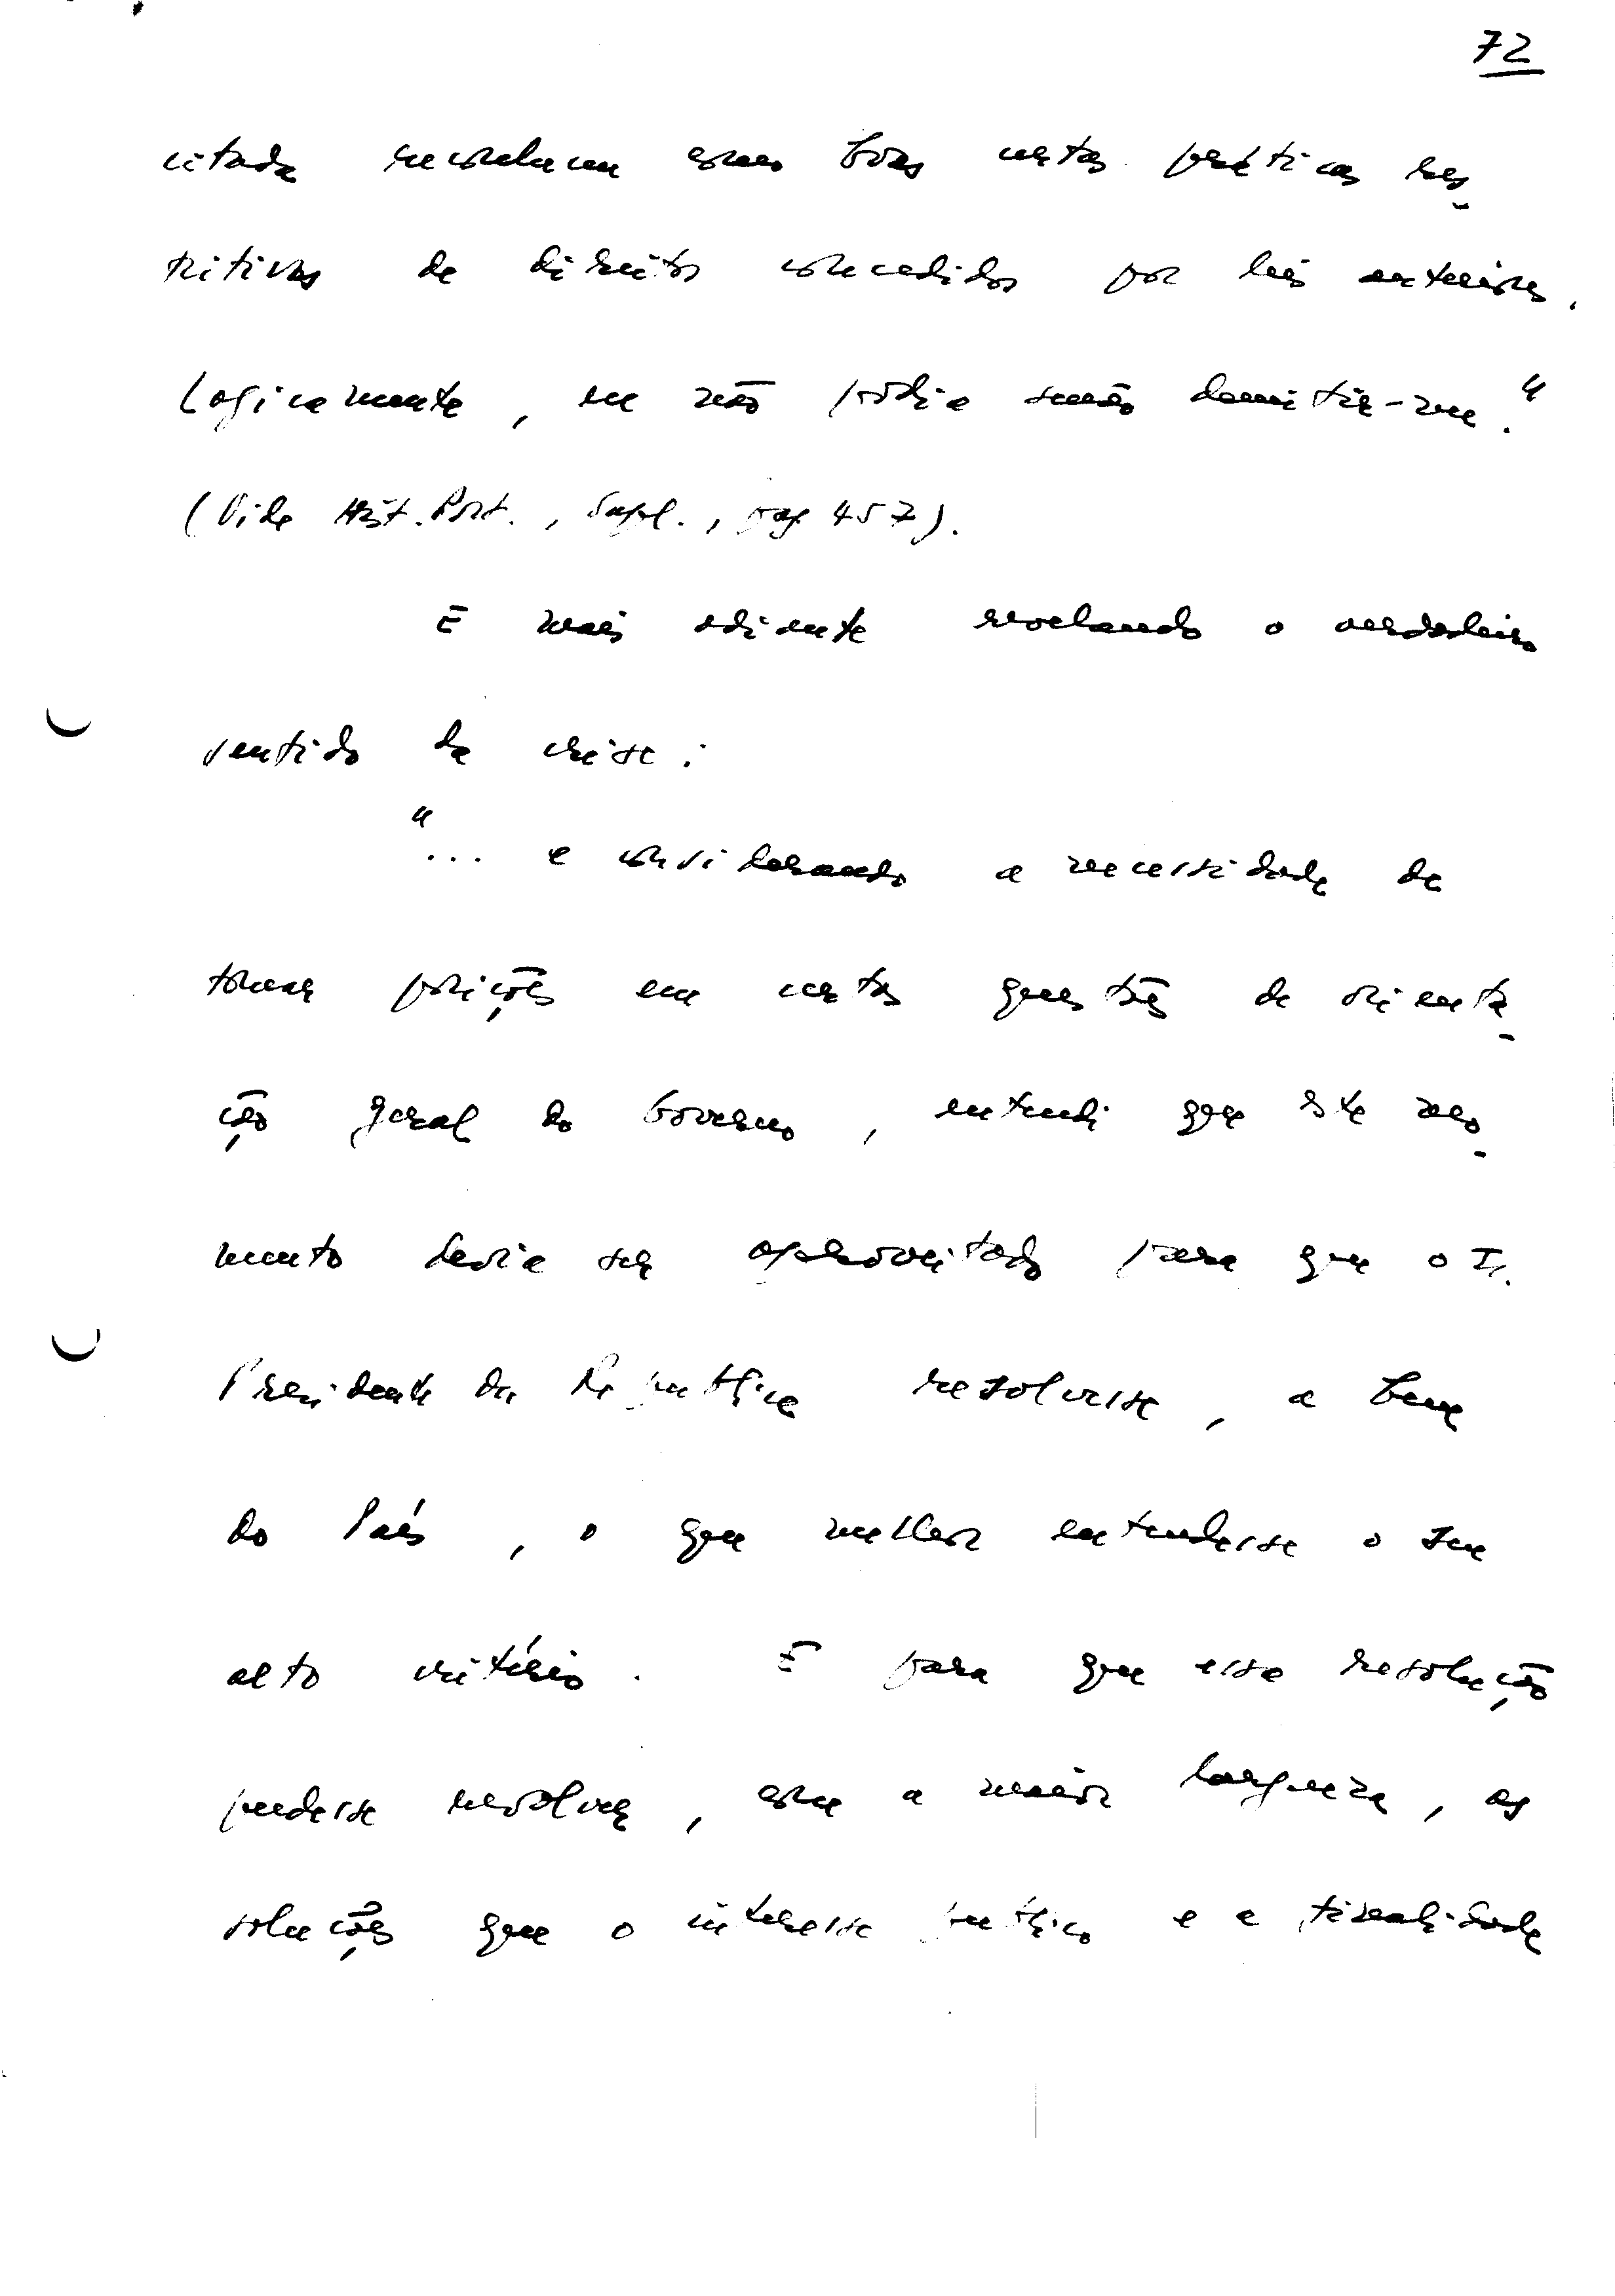 72
citada reconhecem como boas certas práticas res-
tritivas de direitos concedidos por leis anteriores.
Logicamente, eu não podia senão demitir-me."
(Vide Hist. Port., Supl., pag 457).
E mais adiante revelando o verdadeiro
sentido da crise:
"... e considerando a necessidade de
tomar posições em certas questões de orienta-
ção geral do Governo, entendi que este mo-
mento devia ser aproveitado para que o Sr.
Presidente da República resolvesse, a bem
do País, o que melhor entendesse o seu
alto critério. E para que essa resolução
pudesse resolver, com a maior largueza, as
soluções que o interesse público e a finalidade